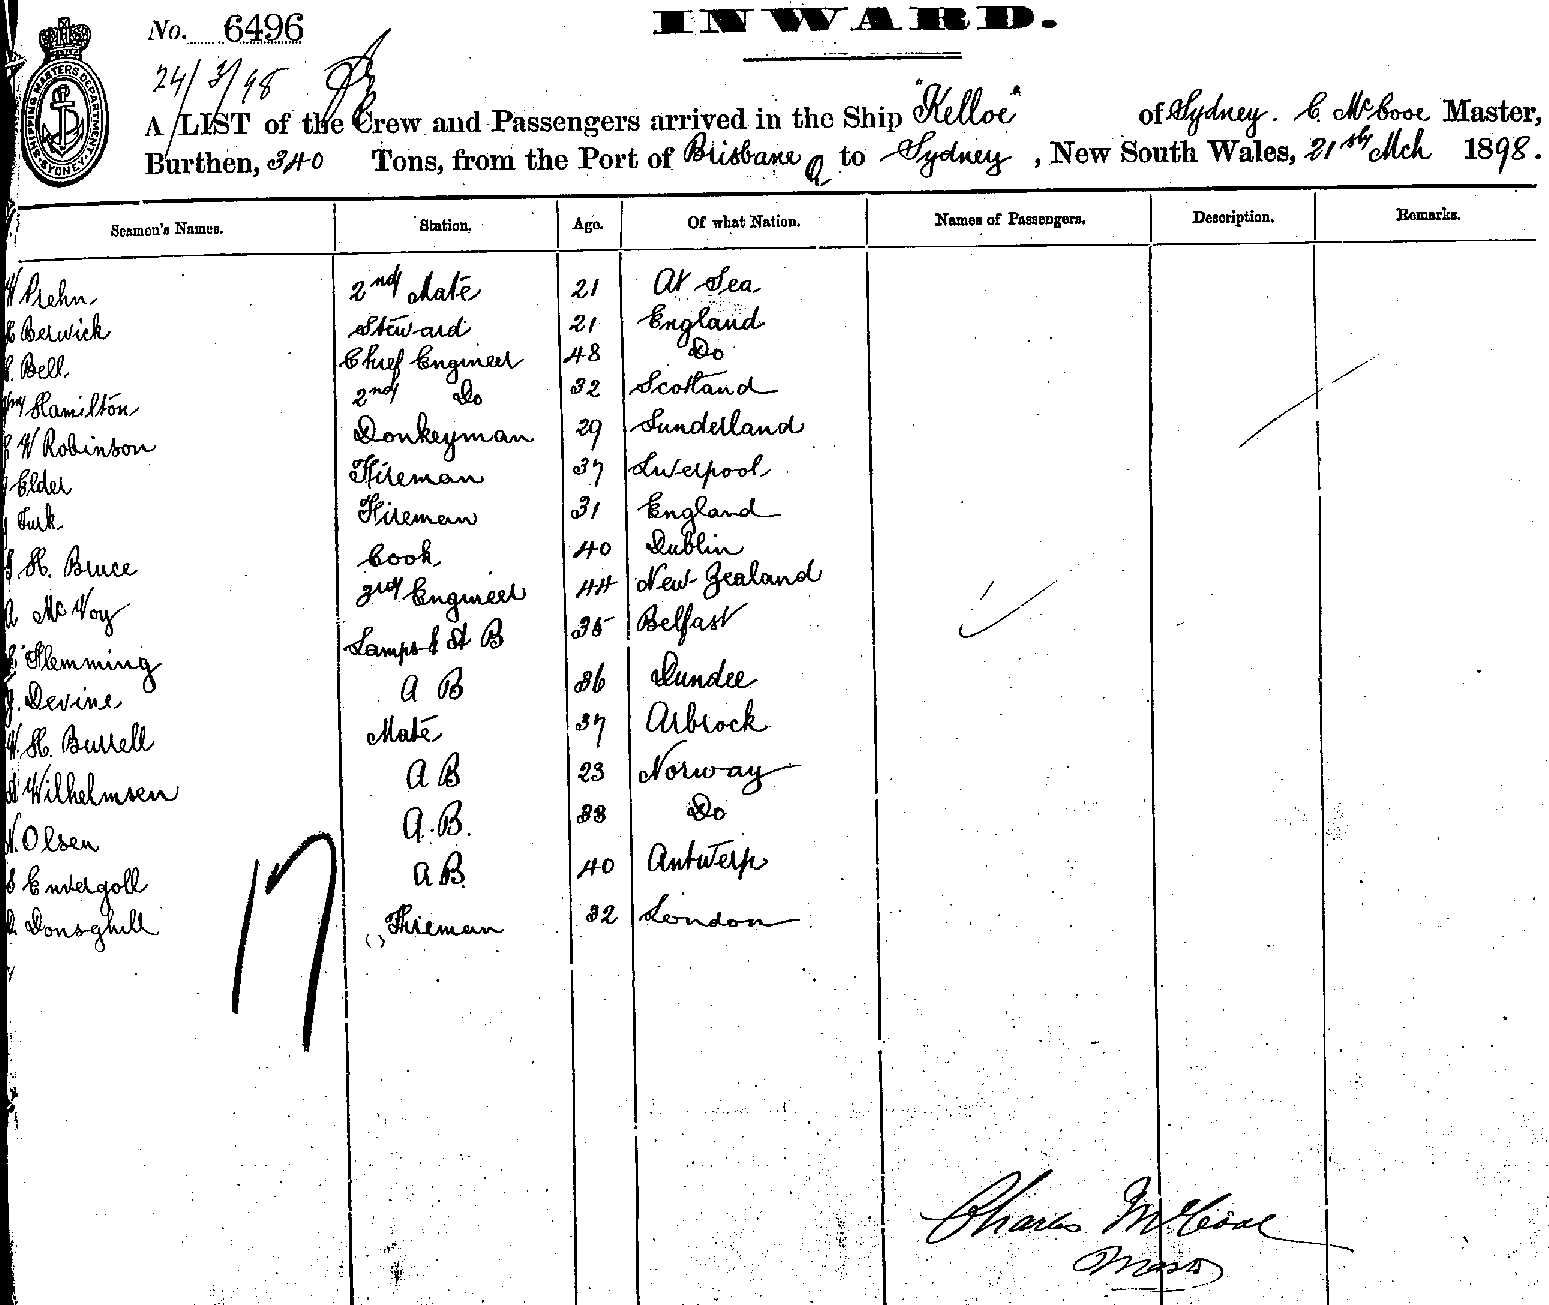 INWARD.
No. 6496
24/3/98
SHIPPING MASTERS DEPARTMENT SYDNEY
A LIST of the Crew and Passengers arrived in the Ship "Kelloe" of Sydney. C. McCooe Master,
Burthen, 340 Tons, from the Port of Brisbane Q to Sydney, New South Wales, 21st Mch 1898.
Seamen's Names. Station. Age. Of what Nation. Names of Passengers. Description. Remarks.
W Prehn 2nd Mate 21 At Sea
Berwick Steward 21 England
Bell Chief Engineer 48 Do
Wm Hamilton 2nd Do 32 Scotland
W Robinson Donkeyman 29 Sunderland
Elder Fireman 37 Liverpool
Turk Fireman 31 England
H. Bruce Cook 40 Dublin
A McVoy 3rd Engineer 44 New Zealand
Flemming Lamps & A B 35 Belfast
J. Devine A B 36 Dundee
W. H. Burrell Mate 37 Arbrock
A Wilhelmsen A B 23 Norway
N. Olsen A.B. 33 Do
Envergoll A B. 40 Antwerp
Donsghill Fireman 32 London
17
Charles McCooe
Master